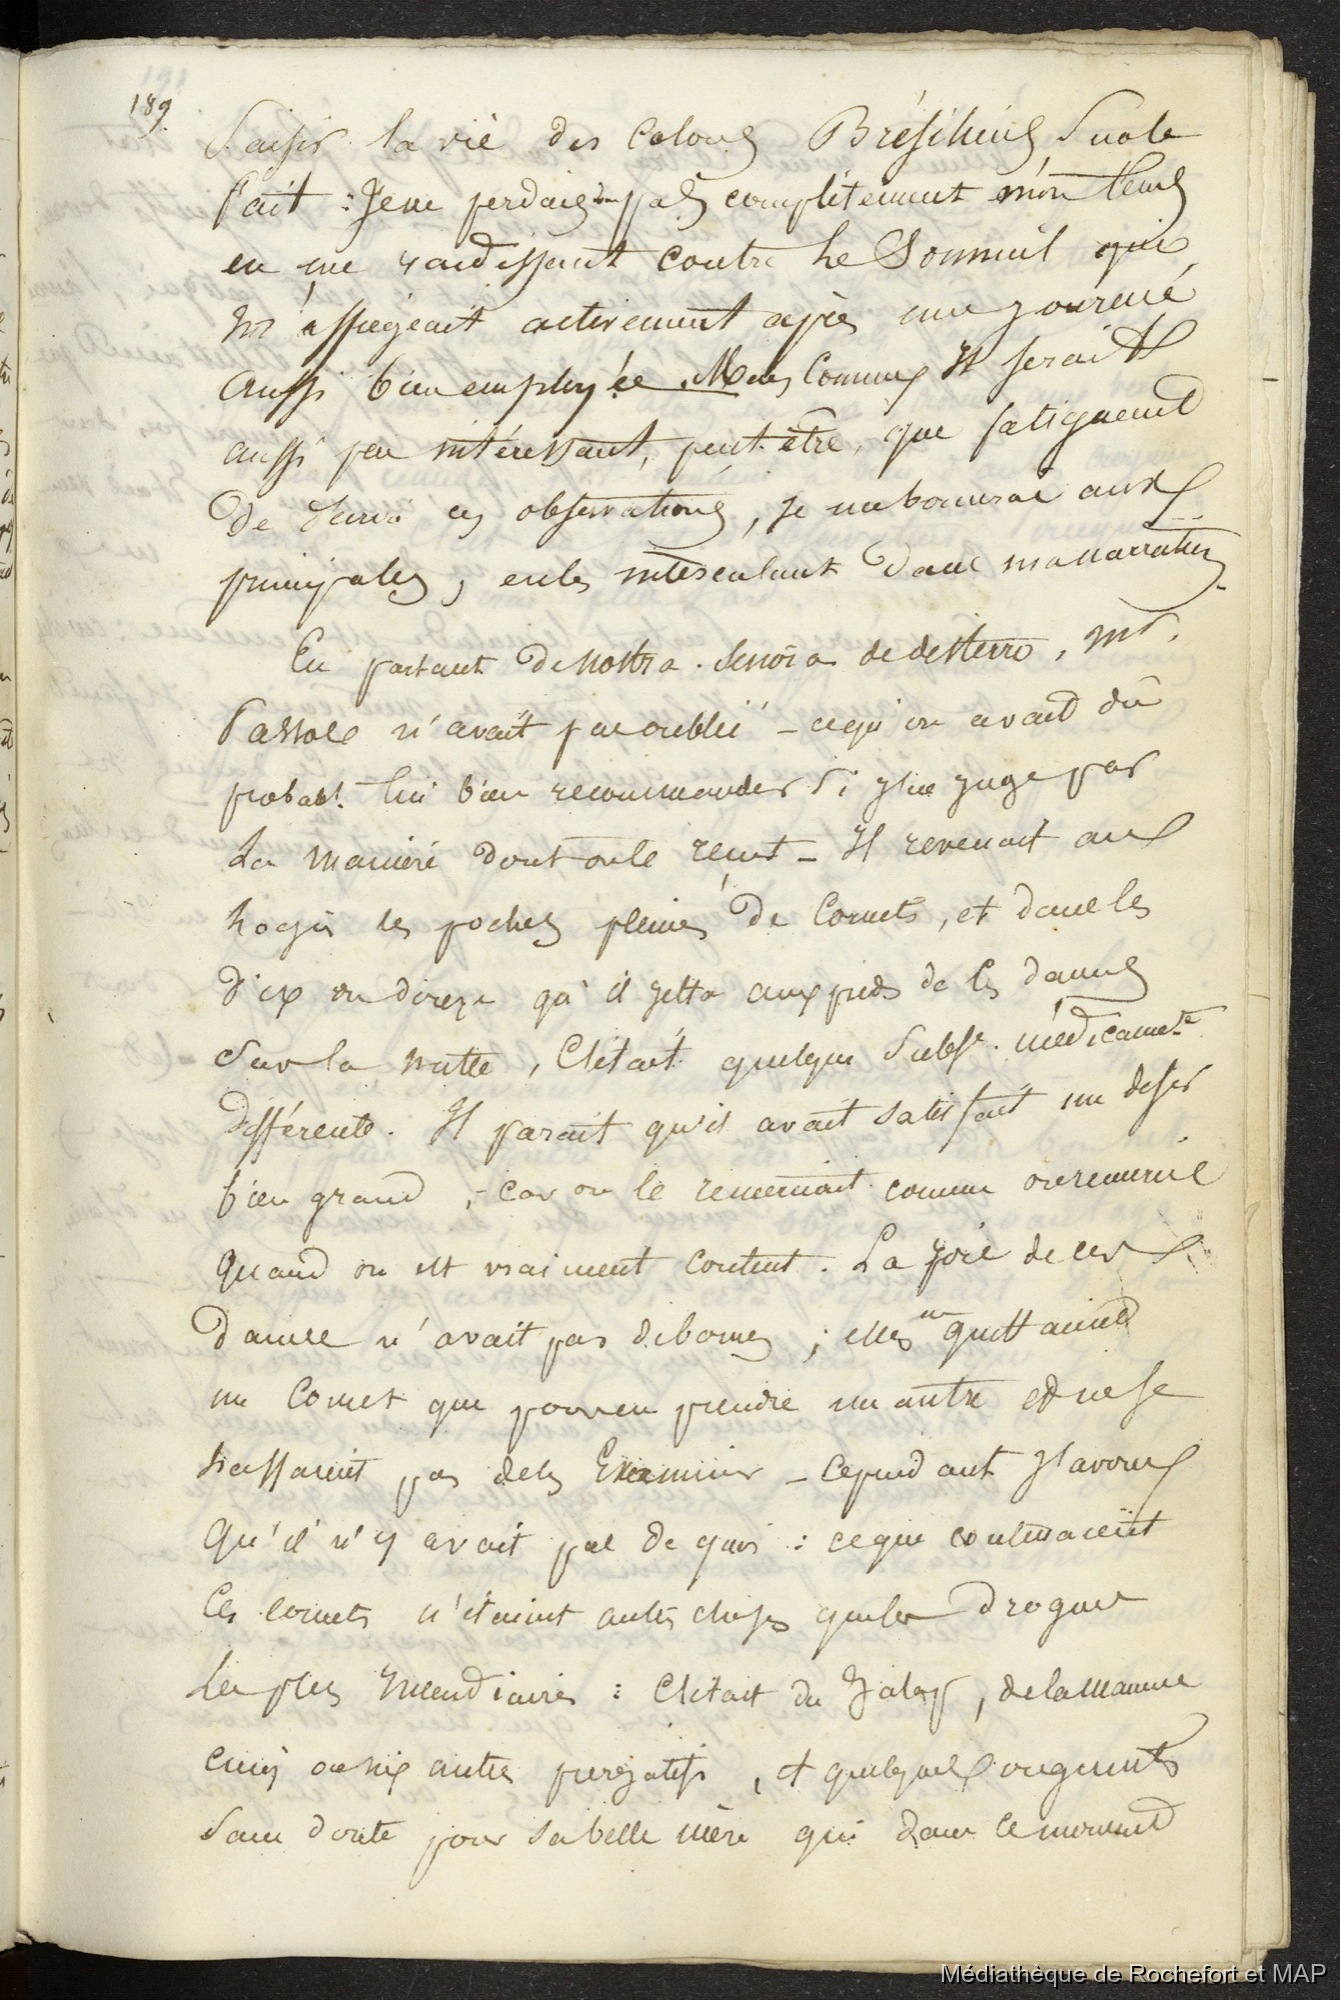 189.
Saisir la vie des Colons Brésiliens Sur le
fait : Je ne perdais donc pas complètement mon tems
en me raidissant contre le Sommeil qui
m'assiégeait activement après une journée
aussi bien employée. Mais Comme Il serait
aussi peu intéressant, peut-être, que fatiguant
De Suivre ces observations, je me bornerai aux
principales, en les intercalant dans ma narration.
En partant De Nostra. Senora de desterro, Mr.
n'avait pas oublié - ce qu'on avait dû
probabt. lui bien recommander Si j'en juge par
La manière dont on le reçut - Il revenait au
logis les poches pleines De Cornets, et dans les
Dix ou douze qu'il jetta aux pieds de ces dames
Sur la natte, C'était quelque Subse. médicamte
Différente. Il parait qu'il avait satisfait un désir
bien grand, - car on le remerciait comme on remercie
Quand on est vraiment content. La joie de ces
Dames n'avait pas de bornes ; elles ne quittaient
un Cornet que pour en prendre un autre et ne se
lassaient pas de les Examiner - Cependant J'avoue
Qu'il n'y avait pas De quoi : ce que contenaient
Ces cornets n'étaient autres choses que les Drogues
Les plus Incendiaires : C'était du Jalap, de la Manne
cinq ou six autres purgatifs, et quelques onguents
Sans doute pour sa belle mère qui dans ce moment
Médiathèque de Rochefort et MAP